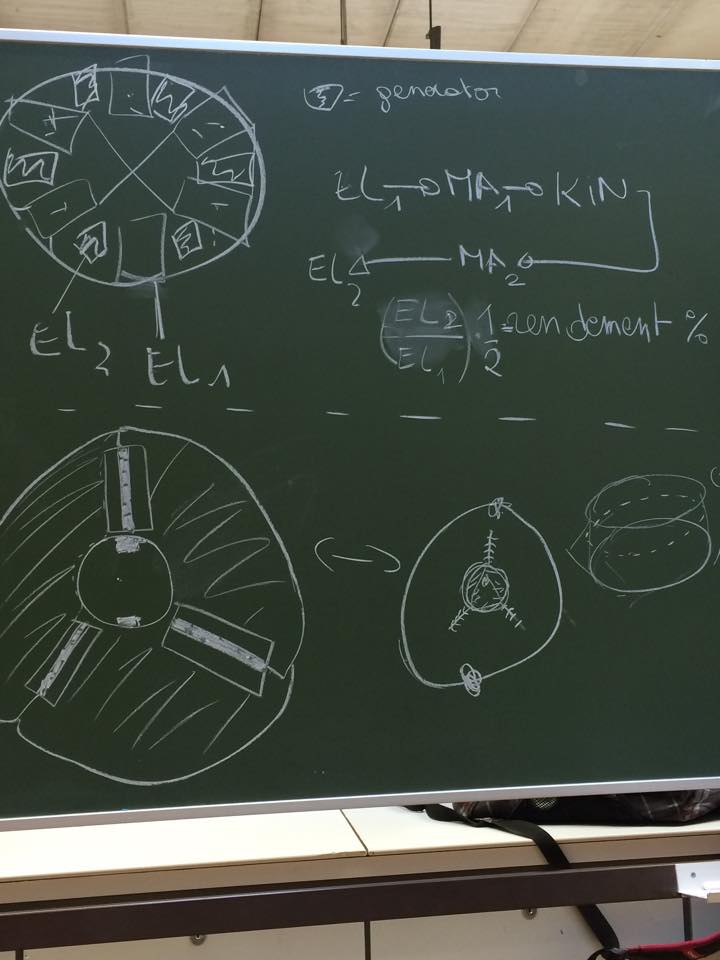 = generator
EL₁ → MA₁ → KIN
EL₂ ← MA₂
(EL₂/EL₁) 1/2 = rendement %
EL₂
EL₁